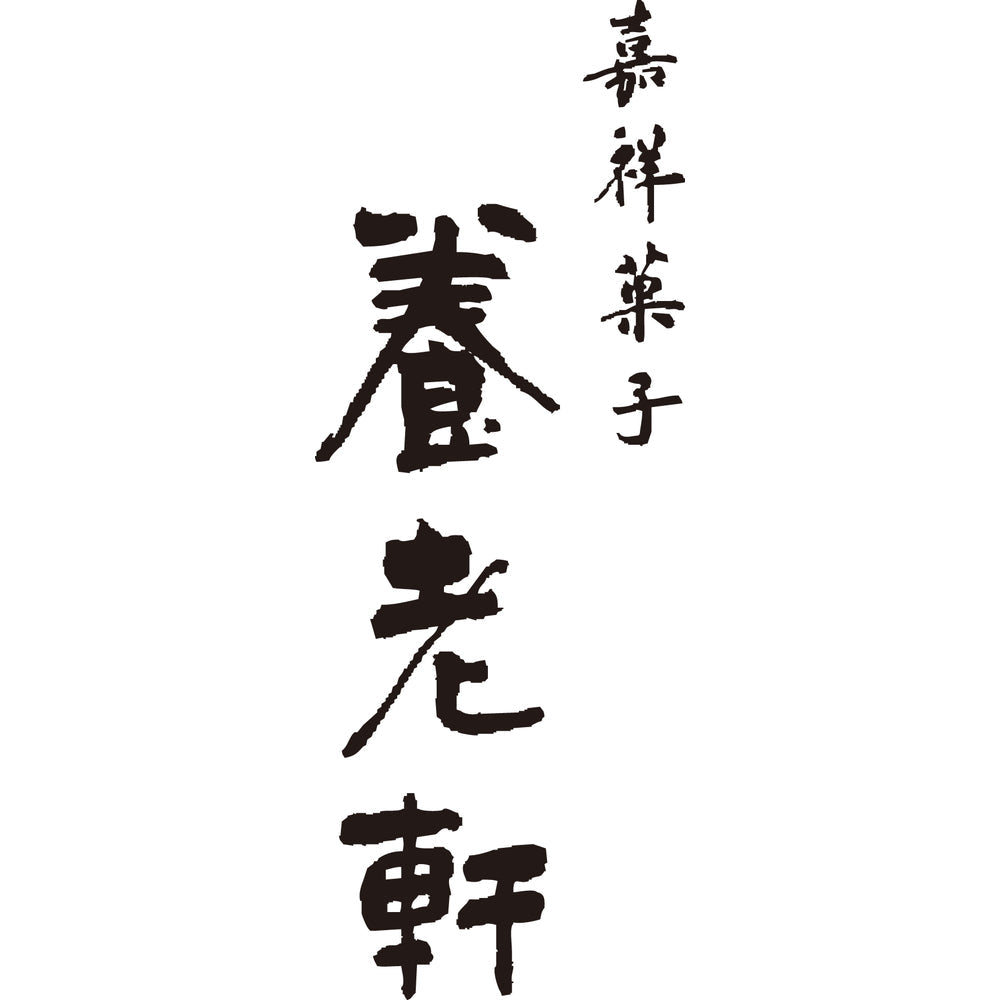 嘉祥菓子
養老軒